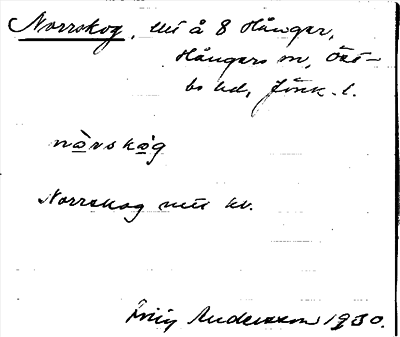 Norrskog, uti å 8 Hånger,
Hångers sn, Öst-
bo hd, Jönk. l.
nòrskòg
Norrskog uti kv.
Andersson 1930.